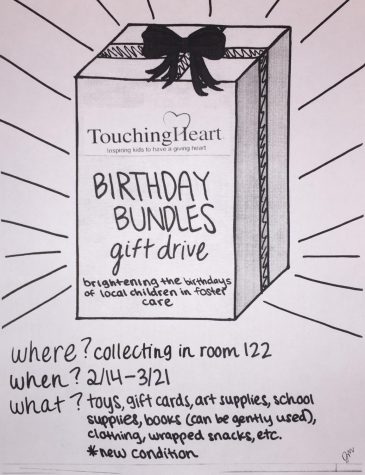 TouchingHeart
Inspiring kids to have a giving heart
BIRTHDAY
BUNDLES
gift drive
brightening the birthdays
of local children in foster
care
where? collecting in room 122
when? 2/14-3/21
what? toys, gift cards, art supplies, school
supplies, books (can be gently used),
clothing, wrapped snacks, etc.
*new condition